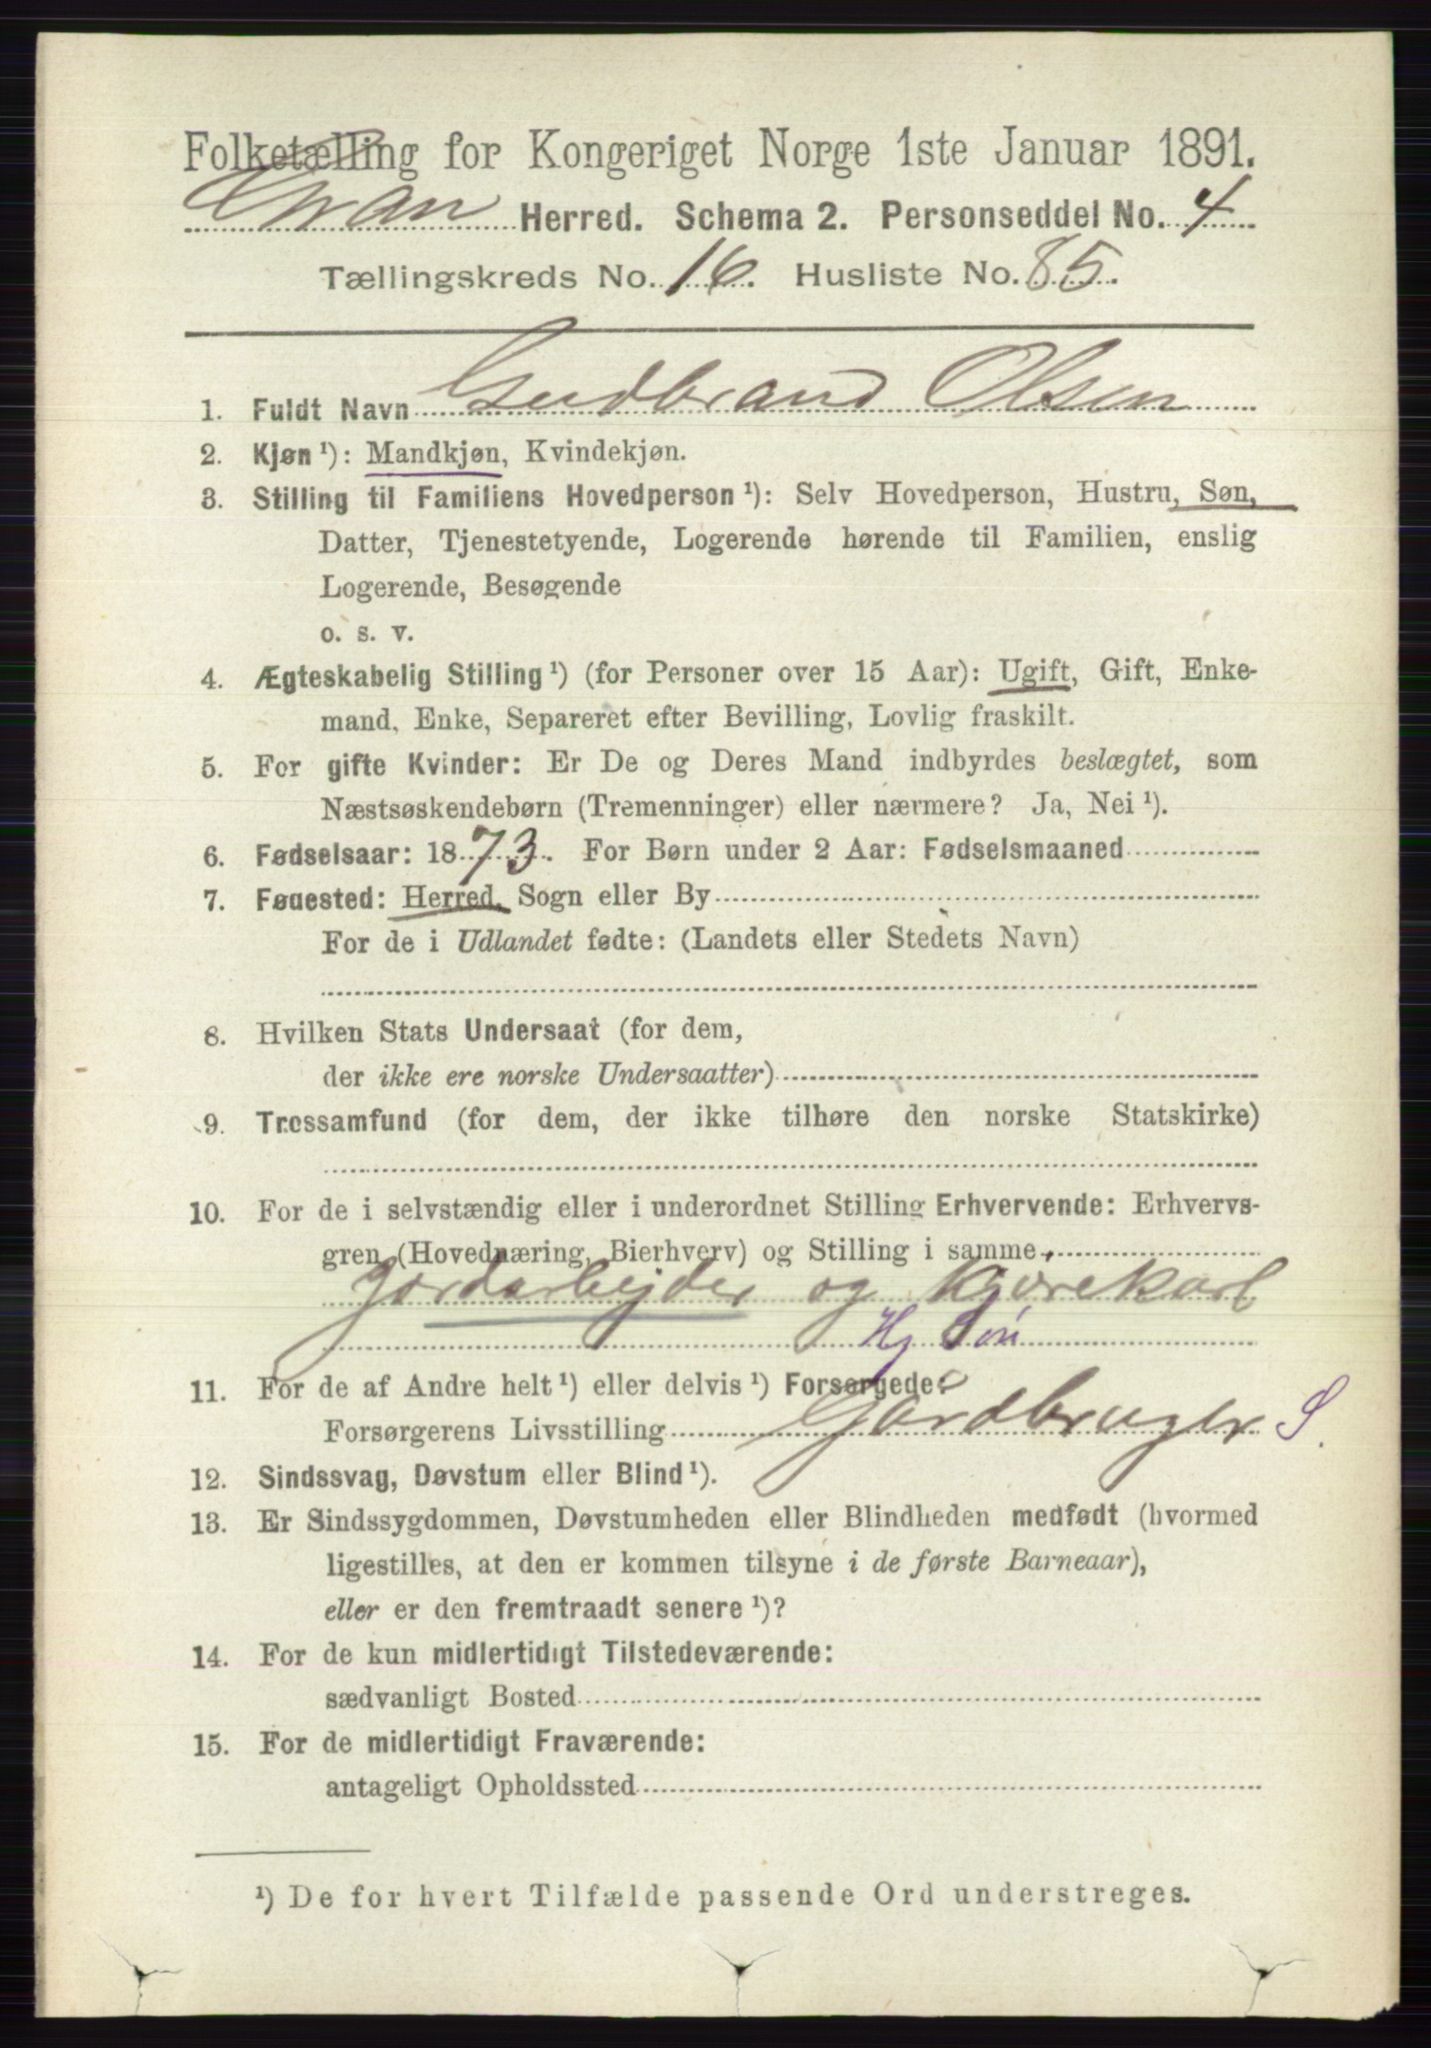 Folketælling for Kongeriget Norge 1ste Januar 1891.
Gran Herred. Schema 2. Personseddel No. 4
Tællingskreds No. 16. Husliste No. 85.
1. Fuldt Navn Gudbrand Olsen
2. Kjøn ¹): Mandkjøn, Kvindekjøn.
3. Stilling til Familiens Hovedperson ¹): Selv Hovedperson, Hustru, Søn,
Datter, Tjenestetyende, Logerende hørende til Familien, enslig
Logerende, Besøgende
o. s. v.
4. Ægteskabelig Stilling ¹) (for Personer over 15 Aar): Ugift, Gift, Enke-
mand, Enke, Separeret efter Bevilling, Lovlig fraskilt.
5. For gifte Kvinder: Er De og Deres Mand indbyrdes beslægtet, som
Næstsøskendebørn (Tremenninger) eller nærmere? Ja, Nei ¹).
6. Fødselsaar: 1873. For Børn under 2 Aar: Fødselsmaaned
7. Fødested: Herred, Sogn eller By
For de i Udlandet fødte: (Landets eller Stedets Navn)
8. Hvilken Stats Undersaat (for dem,
der ikke ere norske Undersaatter)
9. Trossamfund (for dem, der ikke tilhøre den norske Statskirke)
10. For de i selvstændig eller i underordnet Stilling Erhvervende: Erhvervs-
gren (Hovednæring, Bierhverv) og Stilling i samme
Jordarbejder og Kjørekarl
Hj Søn
11. For de af Andre helt ¹) eller delvis ¹) Forsørgede:
Forsørgerens Livsstilling Gårdbruger S.
12. Sindssvag, Døvstum eller Blind ¹).
13. Er Sindssygdommen, Døvstumheden eller Blindheden medfødt (hvormed
ligestilles, at den er kommen tilsyne i de første Barneaar),
eller er den fremtraadt senere ¹)?
14. For de kun midlertidigt Tilstedeværende:
sædvanligt Bosted
15. For de midlertidigt Fraværende:
antageligt Opholdssted
¹) De for hvert Tilfælde passende Ord understreges.